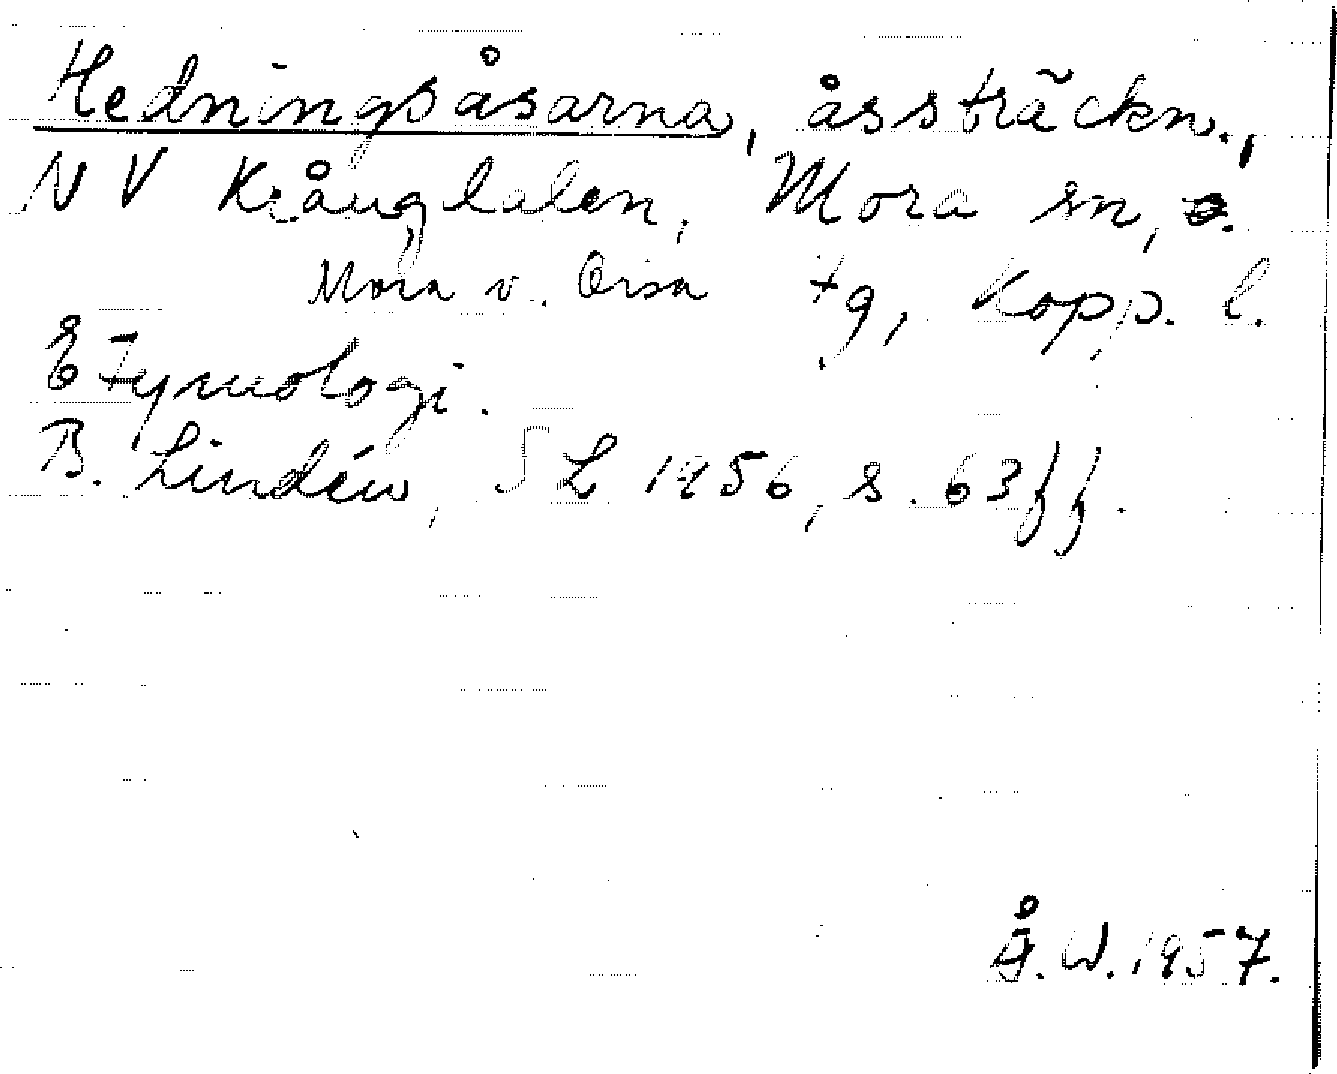 Hedningsåsarna, åssträckn.,
NV Krånglalen, Mora sn,
Mora o. Orsa tg, Kopp. l.
Etymologi.
B. Lindén, SL 1956, s. 63 ff.
Å. W. 1957.